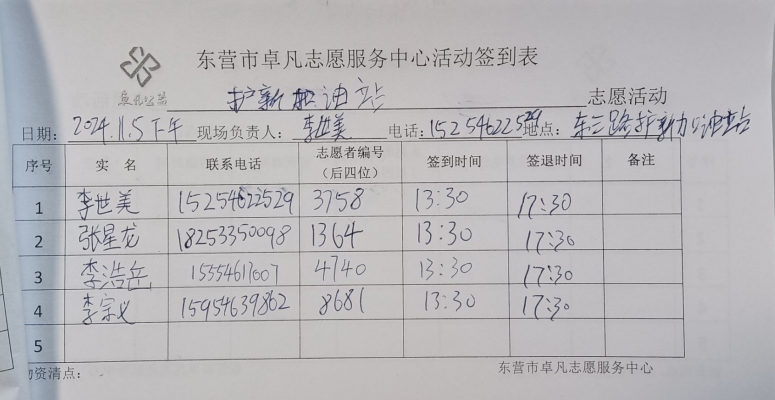 东营市卓凡志愿服务中心活动签到表
卓凡公益
护新加油站 志愿活动
日期: 2024.11.5下午 现场负责人: 李世美 电话: 15254622529 地点: 东三路护新加油站
序号 实 名 联系电话 志愿者编号（后四位） 签到时间 签退时间 备注
1 李世美 15254622529 3758 13:30 17:30
2 张星龙 18253350098 1364 13:30 17:30
3 李浩岳 15554617007 4740 13:30 17:30
4 李宗义 15954639862 8681 13:30 17:30
5
物资清点： 东营市卓凡志愿服务中心